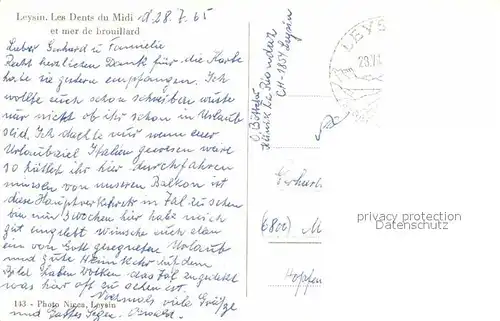 Leysin. Les Dents du Midi
et mer de brouillard
d. 28.7.65
Lieber Gerhard u Fammilie
Recht herzlichen Dank für die Karte
habe sie gestern empfangen. Ich
wollte euch schon schreiben wuste
nur nicht ob ihr schon in Urlaub
seid. Ich dachte nur wenn euer
Urlaubsziel Italien gewesen wäre
so hättet ihr hier durchfahren
müssen von unseren Balkon ist
diese Hauptverkehrstr im Tal zu sehen
bin nun 3 Wochen hier habe mich
gut eingelebt wünsche euch allen
ein von Gott gesegneten Urlaub
und gute Heimkehr. Auf dem
Bild haben Wolken das Tal zugedeckt
was hier oft zu sehen ist.
Nochmals viele Grüße
und Gottes Segen. Oswald.
143 - Photo Nicca, Leysin
CH-1854 Leysin
LEYS
28.7.
Gerhard
(6800) M
Hopfen
privacy protection
ansichtskarten-center